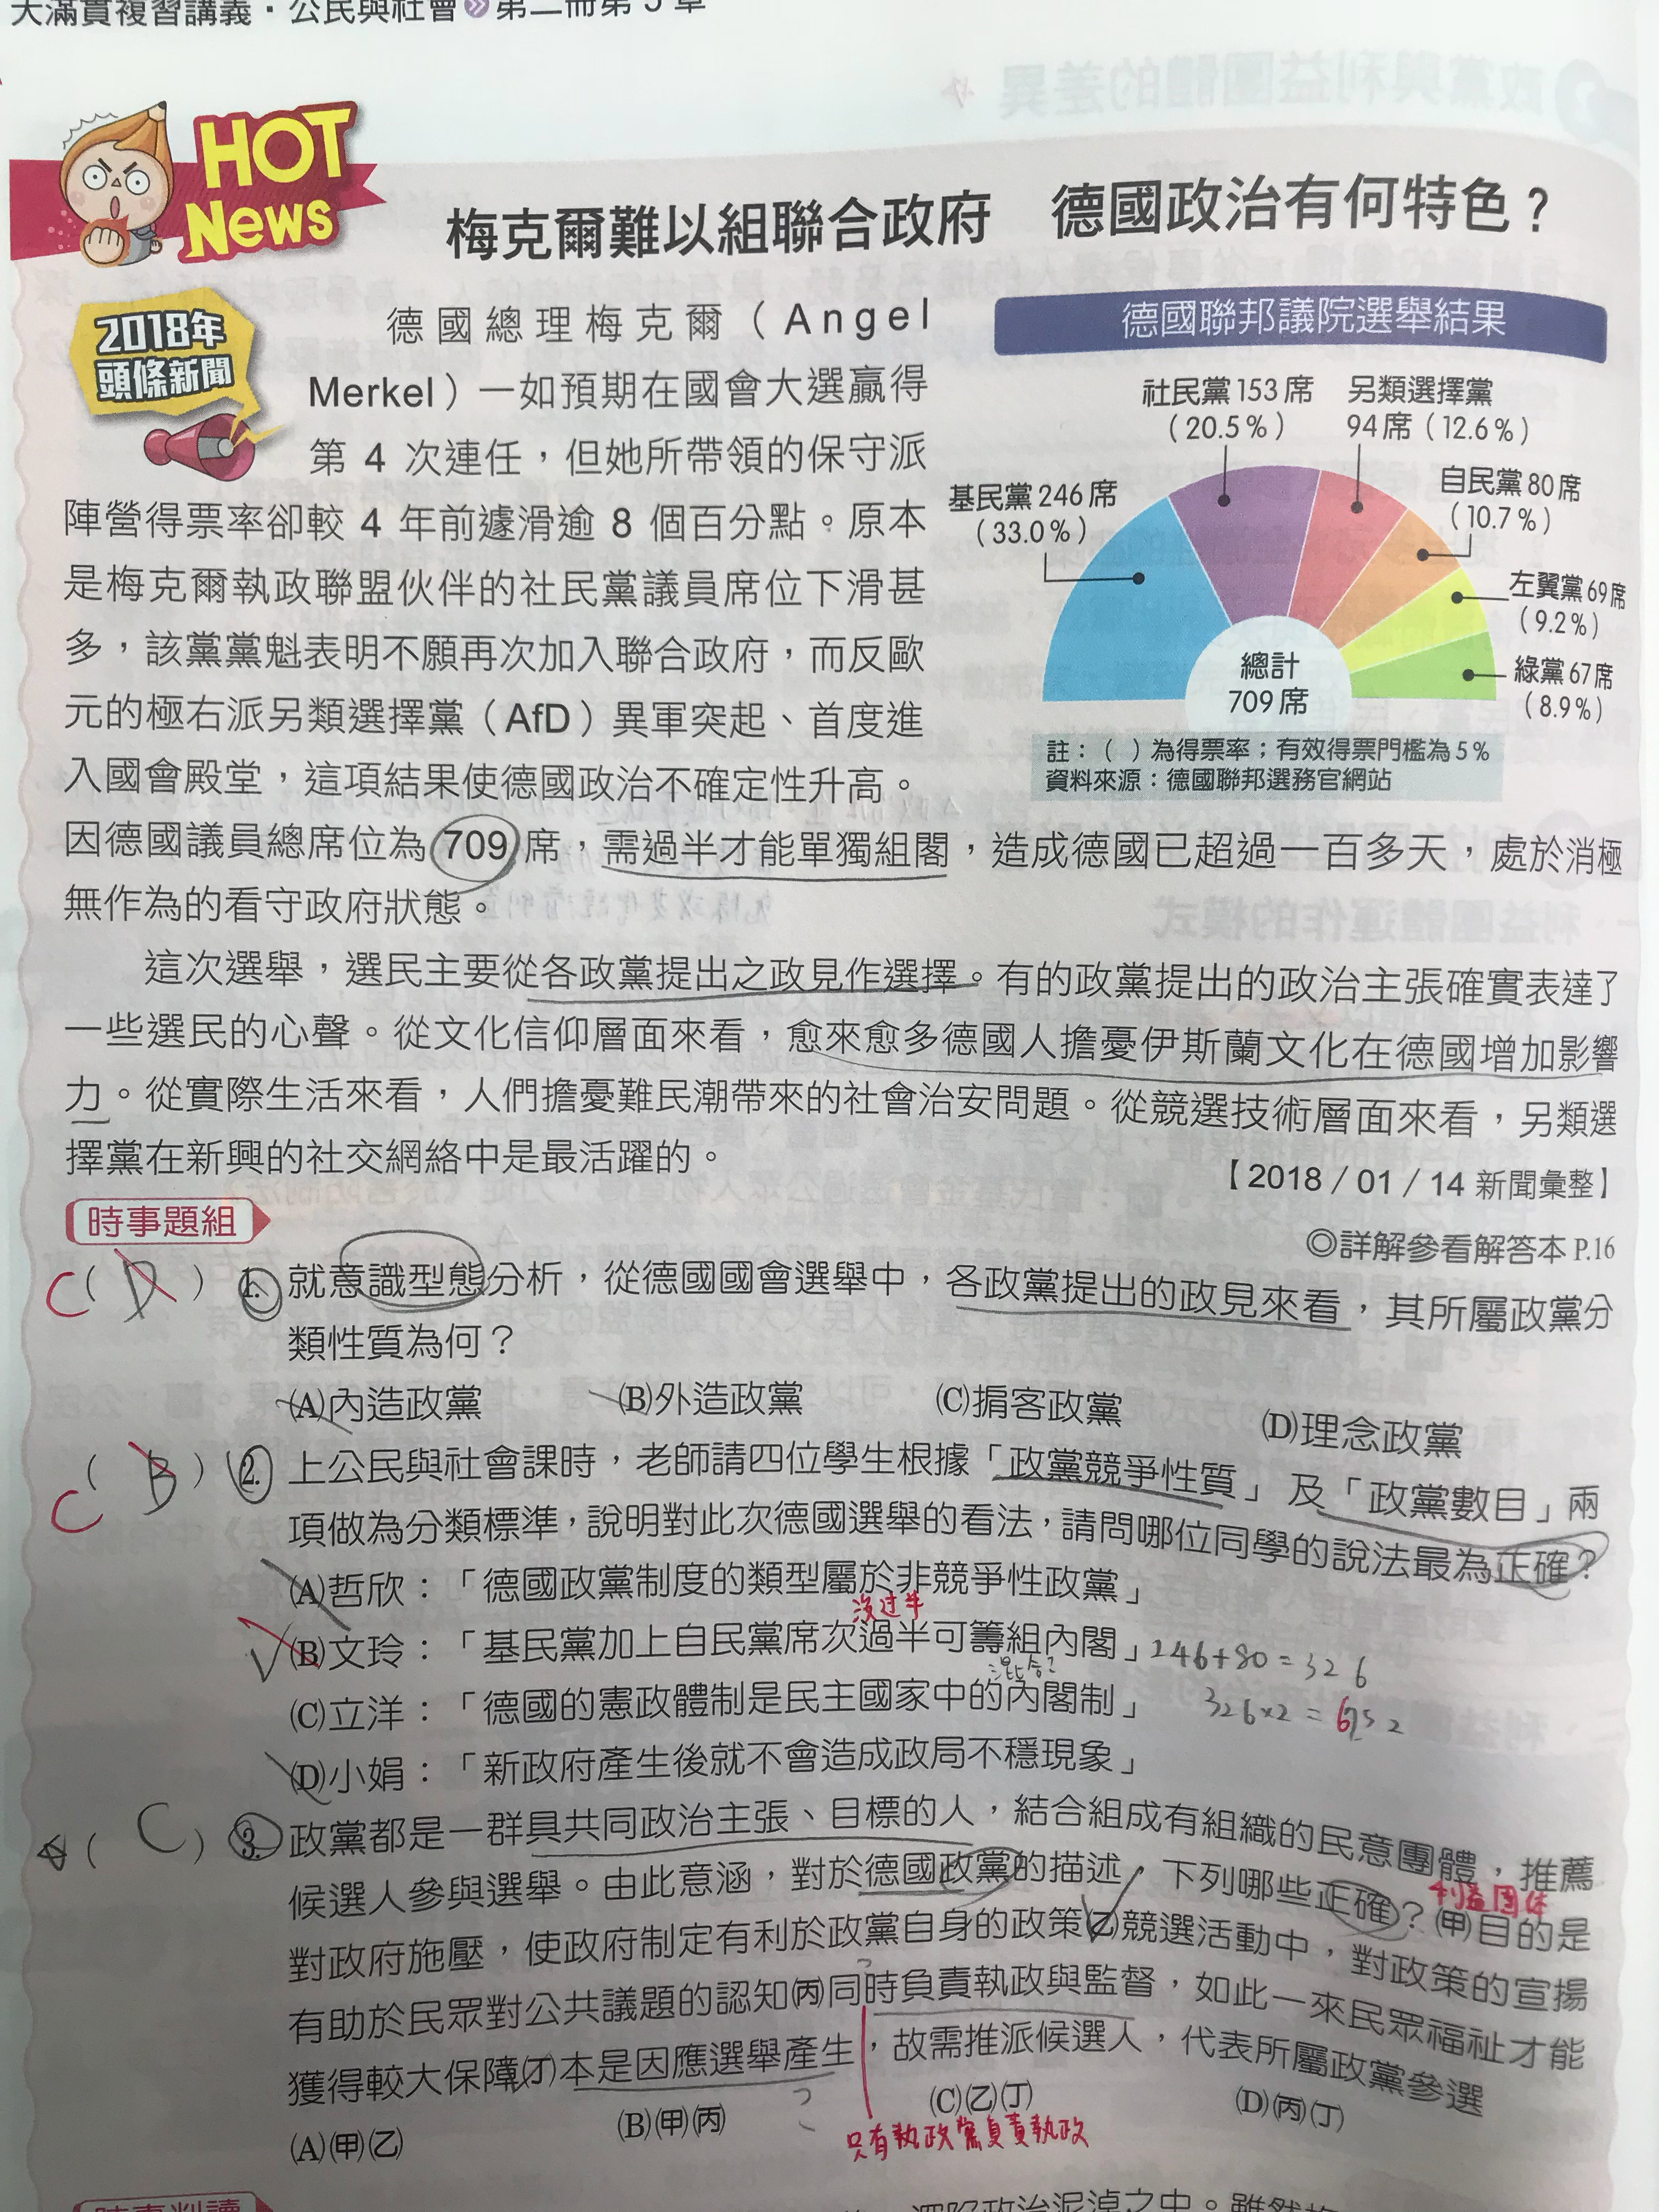 大滿貫複習講義・公民與社會 第二冊第5章
HOT
News
梅克爾難以組聯合政府 德國政治有何特色?
2018年
頭條新聞
德國總理梅克爾(Angel
Merkel)一如預期在國會大選贏得
第 4 次連任,但她所帶領的保守派
陣營得票率卻較 4 年前遽滑逾 8 個百分點。原本
是梅克爾執政聯盟伙伴的社民黨議員席位下滑甚
多,該黨黨魁表明不願再次加入聯合政府,而反歐
元的極右派另類選擇黨(AfD)異軍突起、首度進
入國會殿堂,這項結果使德國政治不確定性升高。
因德國議員總席位為709席,需過半才能單獨組閣,造成德國已超過一百多天,處於消極
無作為的看守政府狀態。
德國聯邦議院選舉結果
社民黨153席
(20.5%)
另類選擇黨
94席(12.6%)
基民黨246席
(33.0%)
自民黨80席
(10.7%)
左翼黨69席
(9.2%)
綠黨67席
(8.9%)
總計
709席
註:( )為得票率;有效得票門檻為5%
資料來源:德國聯邦選務官網站
這次選舉,選民主要從各政黨提出之政見作選擇。有的政黨提出的政治主張確實表達了
一些選民的心聲。從文化信仰層面來看,愈來愈多德國人擔憂伊斯蘭文化在德國增加影響
力。從實際生活來看,人們擔憂難民潮帶來的社會治安問題。從競選技術層面來看,另類選
擇黨在新興的社交網絡中是最活躍的。
【2018/01/14 新聞彙整】
時事題組
◎詳解參看解答本 P.16
C( D )1.就意識型態分析,從德國國會選舉中,各政黨提出的政見來看,其所屬政黨分
類性質為何?
(A)內造政黨 (B)外造政黨 (C)掮客政黨 (D)理念政黨
C( B )2.上公民與社會課時,老師請四位學生根據「政黨競爭性質」及「政黨數目」兩
項做為分類標準,說明對此次德國選舉的看法,請問哪位同學的說法最為正確?
(A)哲欣:「德國政黨制度的類型屬於非競爭性政黨」
没过半
(B)文玲:「基民黨加上自民黨席次過半可籌組內閣」246+80=326
混合?
(C)立洋:「德國的憲政體制是民主國家中的內閣制」 326×2=652
(D)小娟:「新政府產生後就不會造成政局不穩現象」
( C )3.政黨都是一群具共同政治主張、目標的人,結合組成有組織的民意團體,推薦
候選人參與選舉。由此意涵,對於德國政黨的描述,下列哪些正確?(甲)目的是
利益团体
對政府施壓,使政府制定有利於政黨自身的政策(乙)競選活動中,對政策的宣揚
有助於民眾對公共議題的認知(丙)同時負責執政與監督,如此一來民眾福祉才能
獲得較大保障(丁)本是因應選舉產生,故需推派候選人,代表所屬政黨參選
(A)(甲)(乙) (B)(甲)(丙) (C)(乙)(丁) (D)(丙)(丁)
只有執政黨負責執政